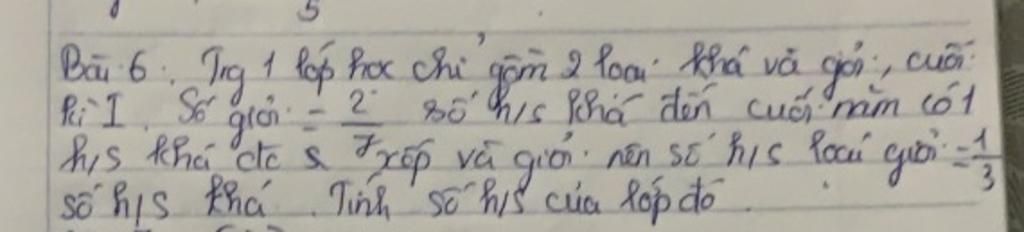 5
Bài 6. Trg 1 lớp học chỉ gồm 2 loại khá và giỏi, cuối
kì I. Số giỏi = 2/7 số h/s khá đến cuối năm có 1
h/s khá đc xếp và giỏi nên số h/s loại giỏi = 1/3
số h/s khá. Tính số h/s của lớp đó.